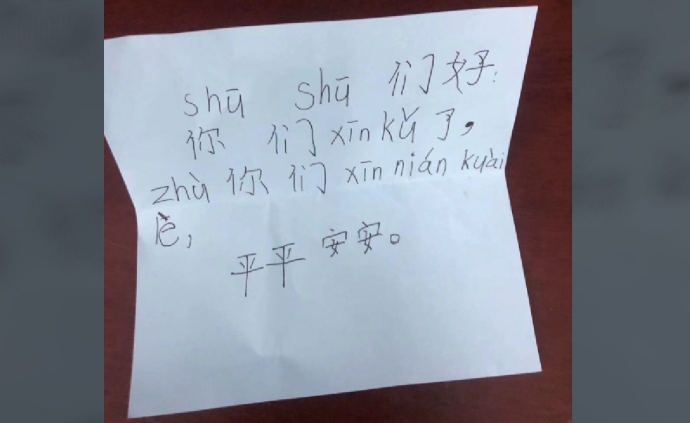 shū shū 们好:
你 们 xīn kǔ 了，
zhù 你 们 xīn nián kuài
lè，
平平 安安。